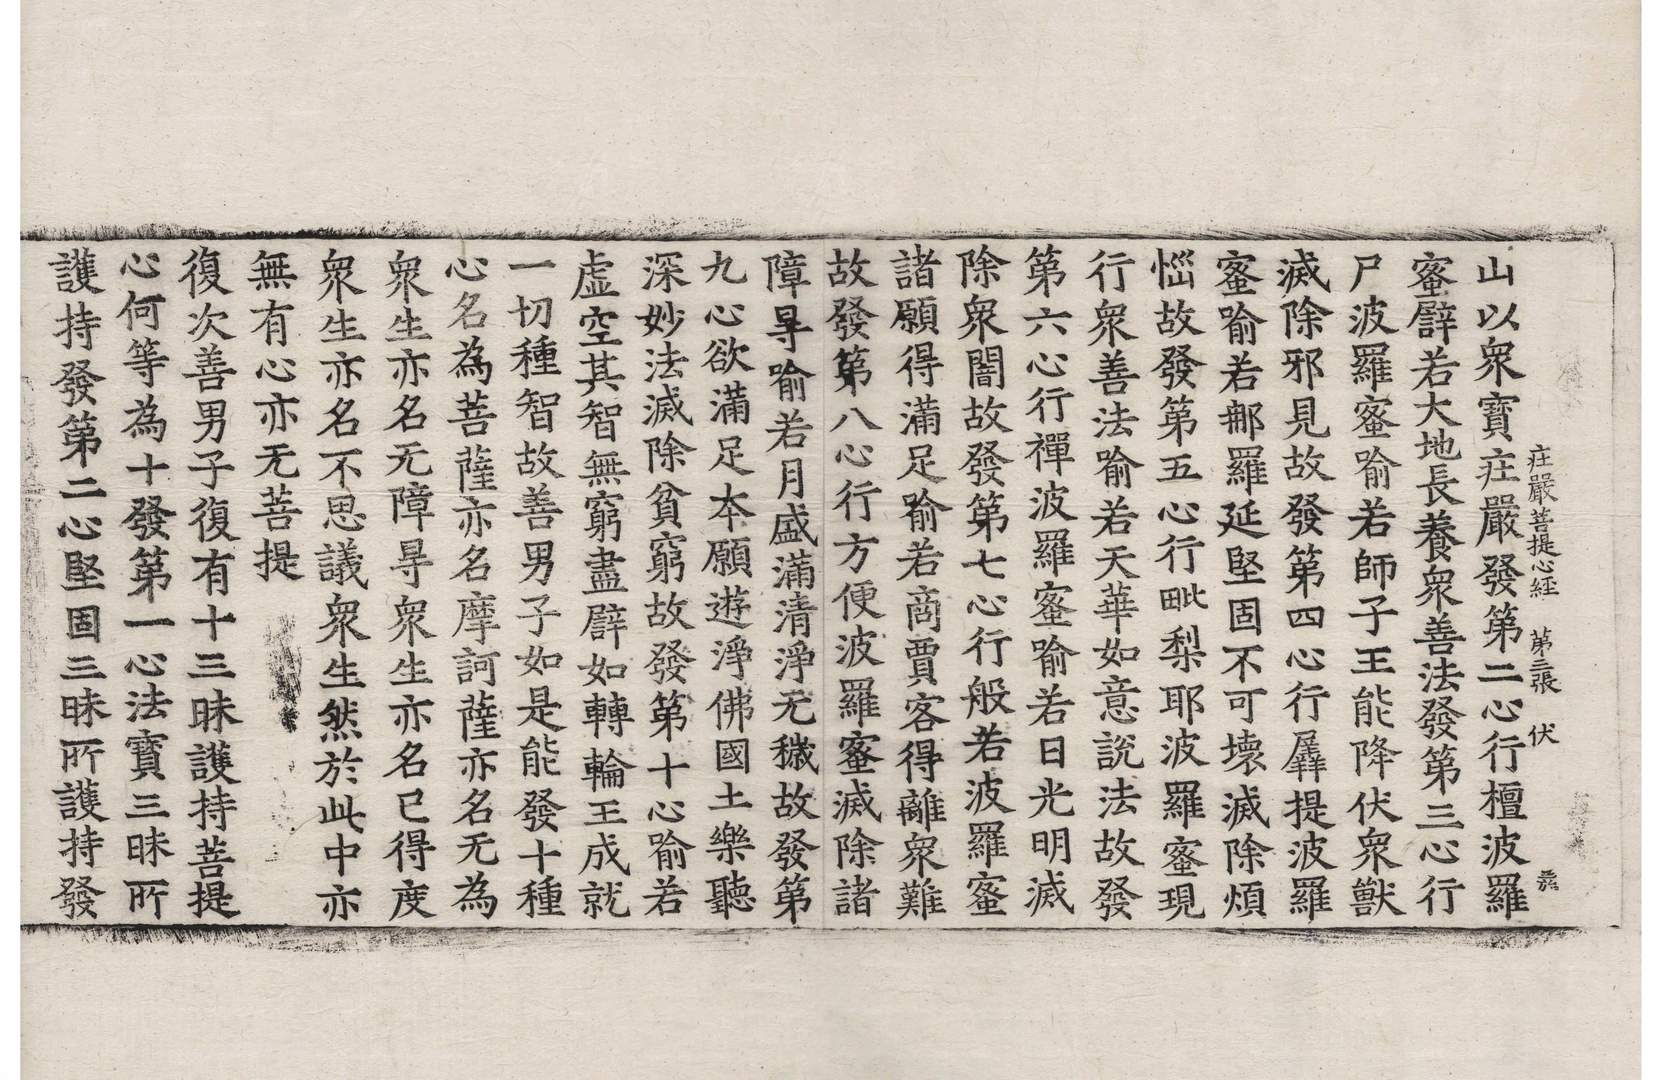 莊嚴菩提心經 第三張 伏
山以衆寶莊嚴發第二心行檀波羅
蜜譬若大地長養衆善法發第三心行
尸波羅蜜喻若師子王能降伏衆獸
滅除邪見故發第四心行羼提波羅
蜜喻若那羅延堅固不可壞滅除煩
惱故發第五心行毗梨耶波羅蜜現
行衆善法喻若天華如意說法故發
第六心行禪波羅蜜喻若日光明滅
除衆闇故發第七心行般若波羅蜜
諸願得滿足喻若商賈客得離衆難
故發第八心行方便波羅蜜滅除諸
障㝵喻若月盛滿清淨无穢故發第
九心欲滿足本願遊淨佛國土樂聽
深妙法滅除貧窮故發第十心喻若
虛空其智無窮盡譬如轉輪王成就
一切種智故善男子如是能發十種
心名為菩薩亦名摩訶薩亦名无為
衆生亦名无障㝵衆生亦名已得度
衆生亦名不思議衆生然於此中亦
無有心亦无菩提
復次善男子復有十三昧護持菩提
心何等為十發第一心法寶三昧所
護持發第二心堅固三昧所護持發